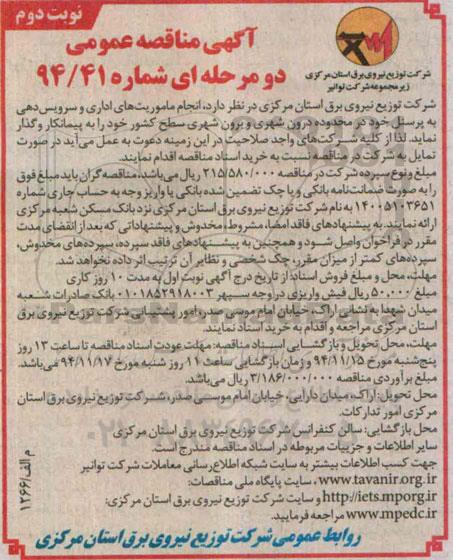 نوبت دوم
شرکت توزیع نیروی برق استان مرکزی
زیر مجموعه شرکت توانیر
آگهی مناقصه عمومی
دو مرحله ای شماره ۹۴/۴۱
شرکت توزیع نیروی برق استان مرکزی در نظر دارد، انجام ماموریت‌های اداری و سرویس‌دهی
به پرسنل خود در محدوده درون شهری و برون شهری سطح کشور خود را به پیمانکار واگذار
نماید. لذا از کلیه شرکت‌های واجد صلاحیت در این زمینه دعوت به عمل می‌آید در صورت
تمایل به شرکت در مناقصه نسبت به خرید اسناد مناقصه اقدام نمایند.
مبلغ و نوع سپرده شرکت در مناقصه ۲۱۵/۵۸۰/۰۰۰ ریال می‌باشد، مناقصه گران باید مبلغ فوق
را به صورت ضمانت‌نامه بانکی و یا چک تضمین شده بانکی یا واریز وجه به حساب جاری شماره
۱۴۰۰۵۱۰۳۶۵۱ به نام شرکت توزیع نیروی برق استان مرکزی نزد بانک مسکن شعبه مرکزی
ارائه نمایند. به پیشنهادهای فاقد امضا، مشروط، مخدوش و پیشنهاداتی که بعد از انقضای مدت
مقرر در فراخوان واصل شود و همچنین به پیشنهادهای فاقد سپرده، سپرده‌های مخدوش،
سپرده‌های کمتر از میزان مقرر، چک شخصی و نظایر آن ترتیب اثر داده نخواهد شد.
مهلت، محل و مبلغ فروش اسناد: از تاریخ درج آگهی نوبت اول به مدت ۱۰ روز کاری
مبلغ ۵۰.۰۰۰ ریال فیش واریزی در وجه سپهر ۰۱۰۱۸۵۲۹۱۸۰۰۳ بانک صادرات شعبه
میدان شهدا به نشانی اراک، خیابان امام موسی صدر، امور پشتیبانی شرکت توزیع نیروی برق
استان مرکزی مراجعه و اقدام به خرید اسناد نمایند.
مهلت، محل تحویل و بازگشایی اسناد مناقصه: مهلت عودت اسناد مناقصه تا ساعت ۱۳ روز
پنج‌شنبه مورخ ۹۴/۱۱/۱۵ و زمان بازگشایی ساعت ۱۱ روز شنبه مورخ ۹۴/۱۱/۱۷ می‌باشد.
مبلغ برآوردی مناقصه ۳/۱۸۶/۰۰۰/۰۰۰ ریال می‌باشد.
محل تحویل: اراک، میدان دارایی، خیابان امام موسی صدر، شرکت توزیع نیروی برق استان
مرکزی امور تدارکات.
محل بازگشایی: سالن کنفرانس شرکت توزیع نیروی برق استان مرکزی
سایر اطلاعات و جزییات مربوطه در اسناد مناقصه مندرج است.
جهت کسب اطلاعات بیشتر به سایت شبکه اطلاع‌رسانی معاملات شرکت توانیر
www.tavanir.org.ir، سایت پایگاه ملی مناقصات:
http://iets.mporg.ir و سایت شرکت توزیع نیروی برق استان مرکزی:
www.mpedc.ir مراجعه فرمایید.
م الف/۱۲۶۶
روابط عمومی شرکت توزیع نیروی برق استان مرکزی